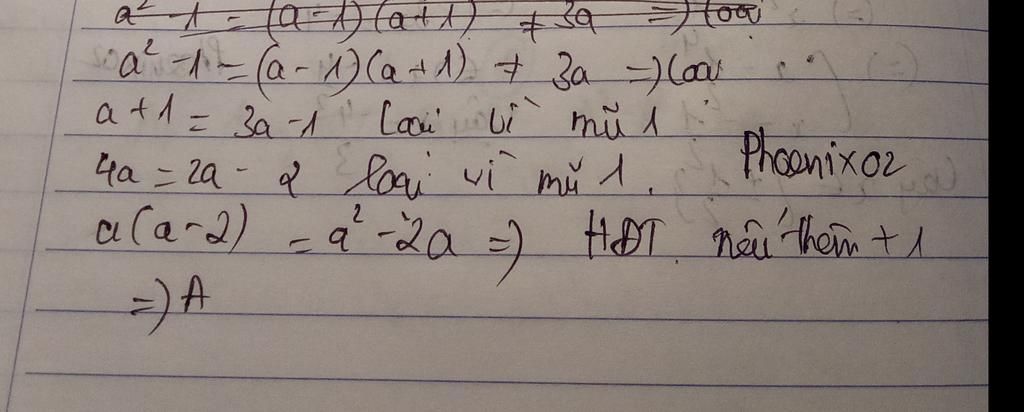 a² - 1 = (a-1)(a+1) ≠ 3a => loại
a² - 1 = (a - 1)(a + 1) ≠ 3a => loại
a + 1 = 3a - 1 loại vì mũ 1
4a = 2a - 2 loại vì mũ 1.
Phoenix02
a(a-2) = a² - 2a => HĐT nếu thêm + 1
=> A